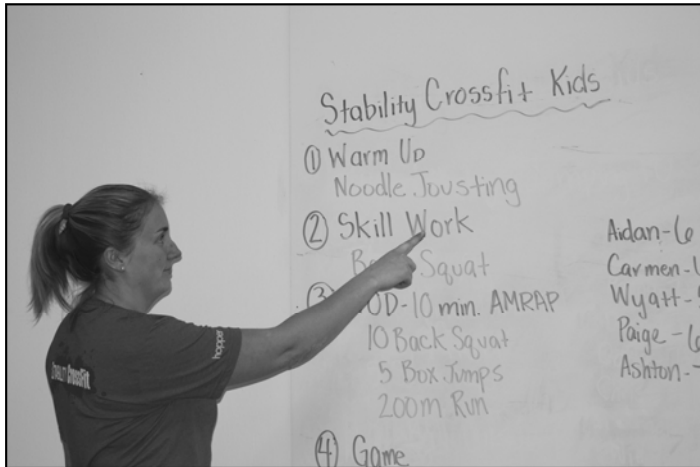 Stability Crossfit Kids
① Warm Up
Noodle Jousting
② Skill Work
Squat
③ 10 min. AMRAP
10 Back Squat
5 Box Jumps
200m Run
④ Game
Aidan-6
Carmen-
Wyatt-
Paige-6
Ashton-
CrossFit
hopper